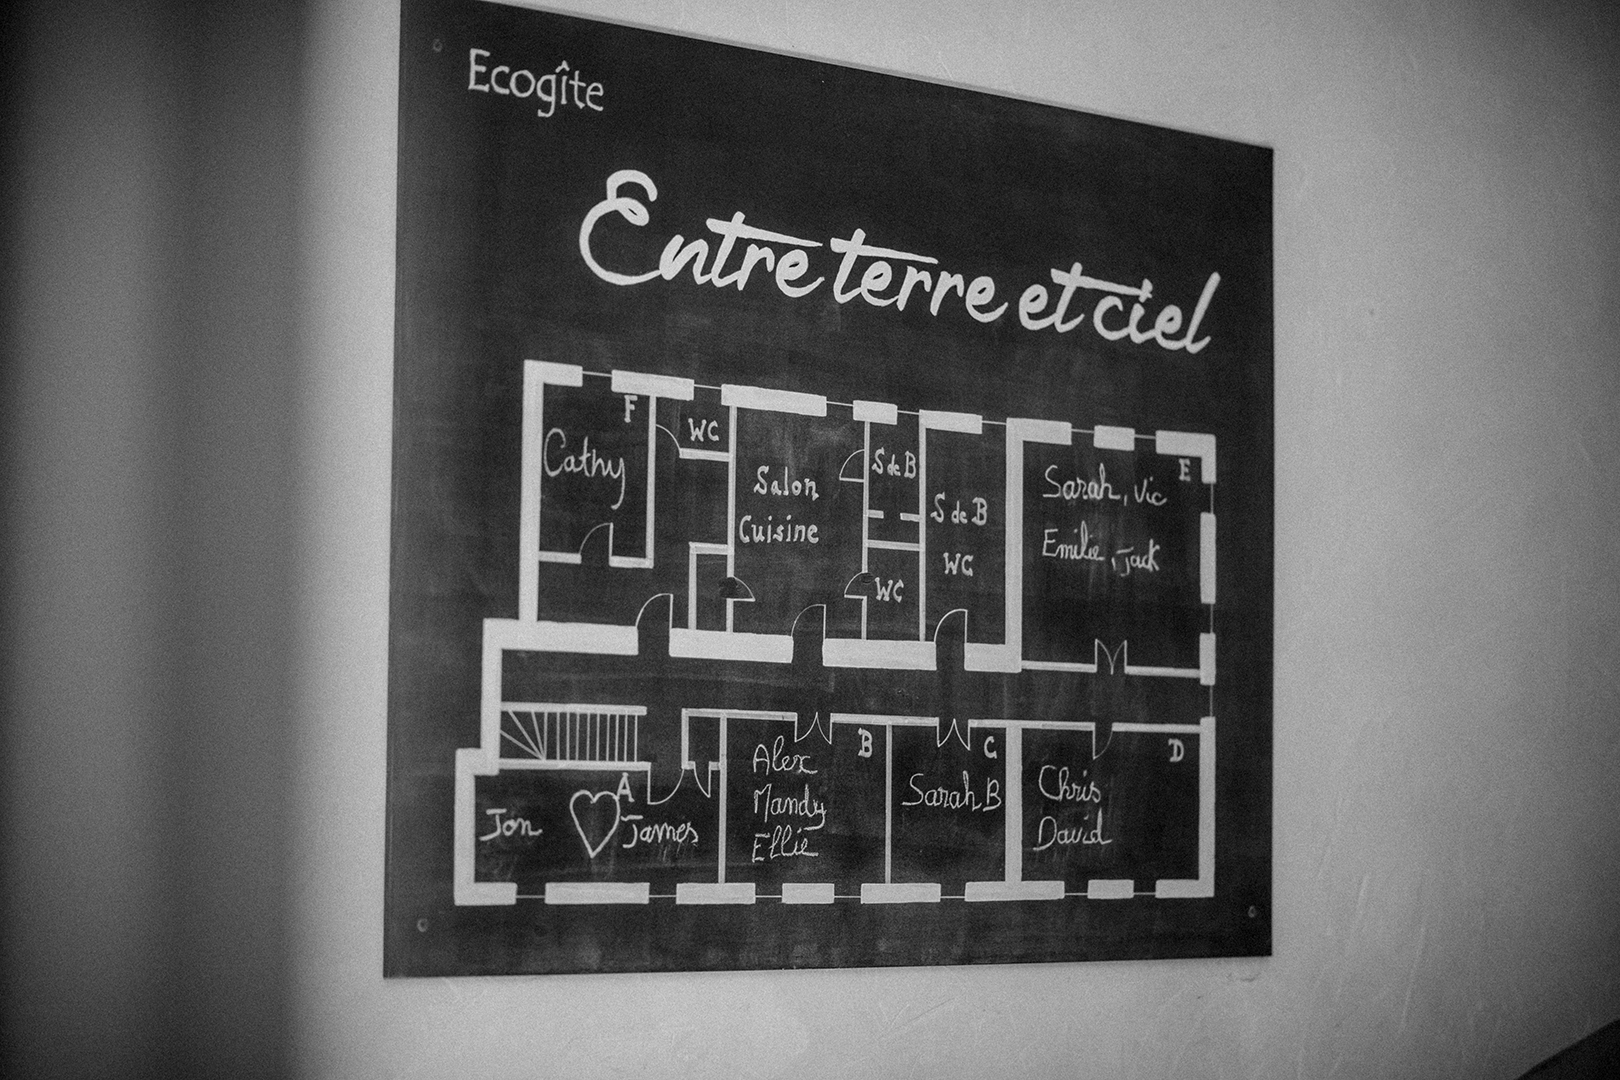 Ecogîte
Entre terre et ciel
F
Cathy
WC
Salon
Cuisine
S de B
WC
S de B
WC
E
Sarah, Vic
Emilie, Jack
A
Jon ♡ James
B
Alex
Mandy
Ellie
C
Sarah B
D
Chris
David